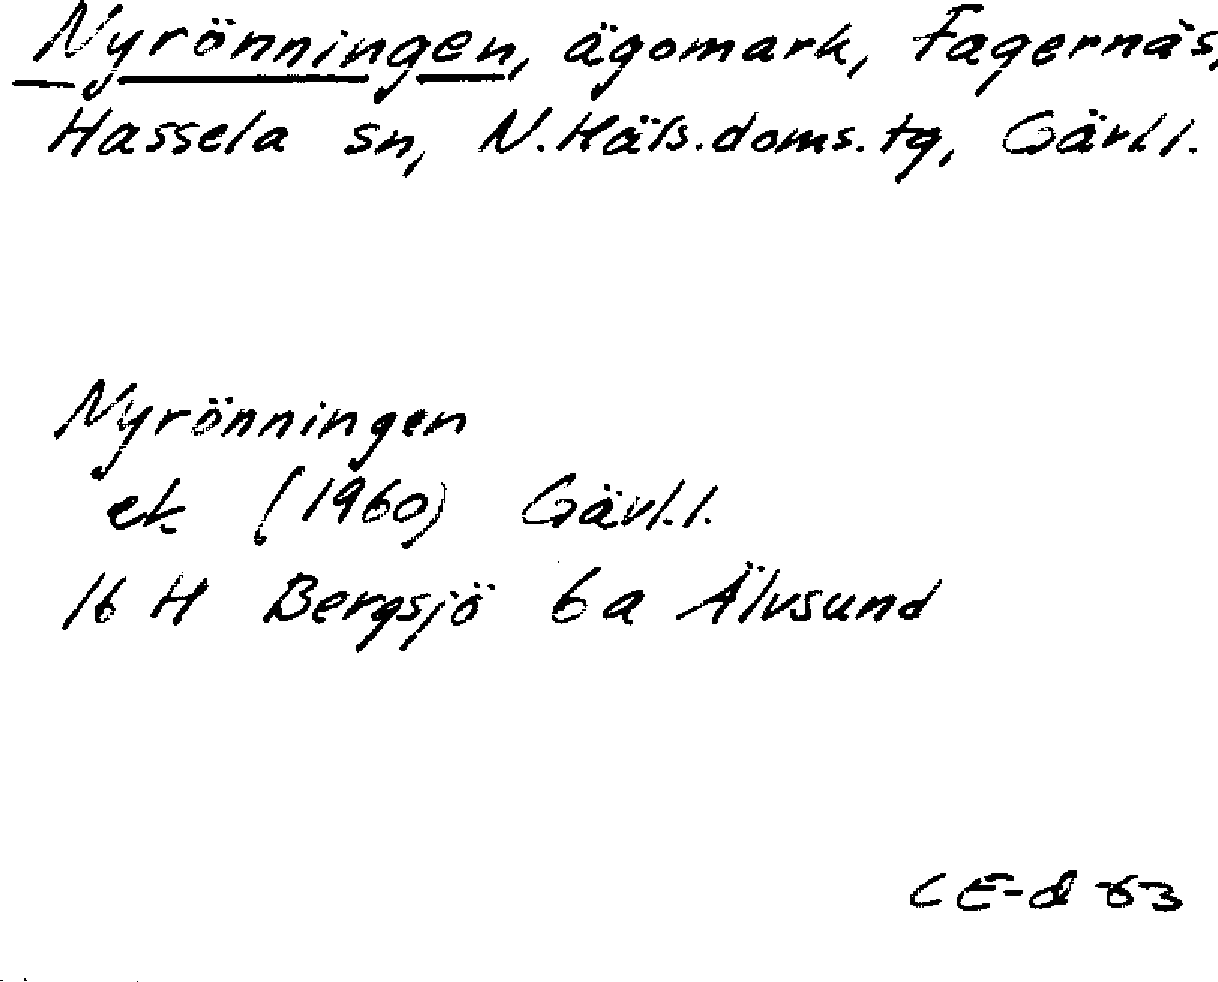 Nyrönningen, ägomark, Fagernäs,
Hassela sn, N.Häls.doms.tg, Gävl.l.
Nyrönningen
ek (1960) Gävl.l.
16 H Bergsjö 6a Älvsund